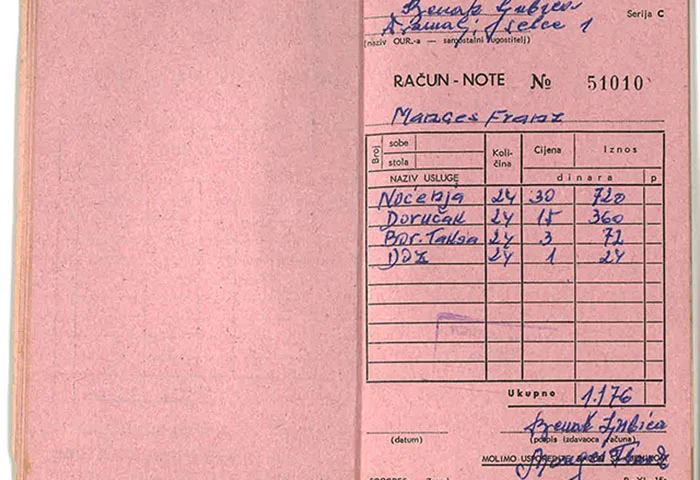 Serija C
Dramalj, Selce 1
(naziv OUR.-a — samostalni ugostitelj)
RAČUN - NOTE № 51010
Manges Franz
Broj sobe
stola
Količina Cijena Iznos
NAZIV USLUGE dinara p
Noćenja 24 30 720
Doručak 24 15 360
Bor. Taksa 24 3 72
DOZ 24 1 24
Ukupno 1.176
Benak Ljubica
(datum) (potpis izdavaoca računa)
MOLIMO